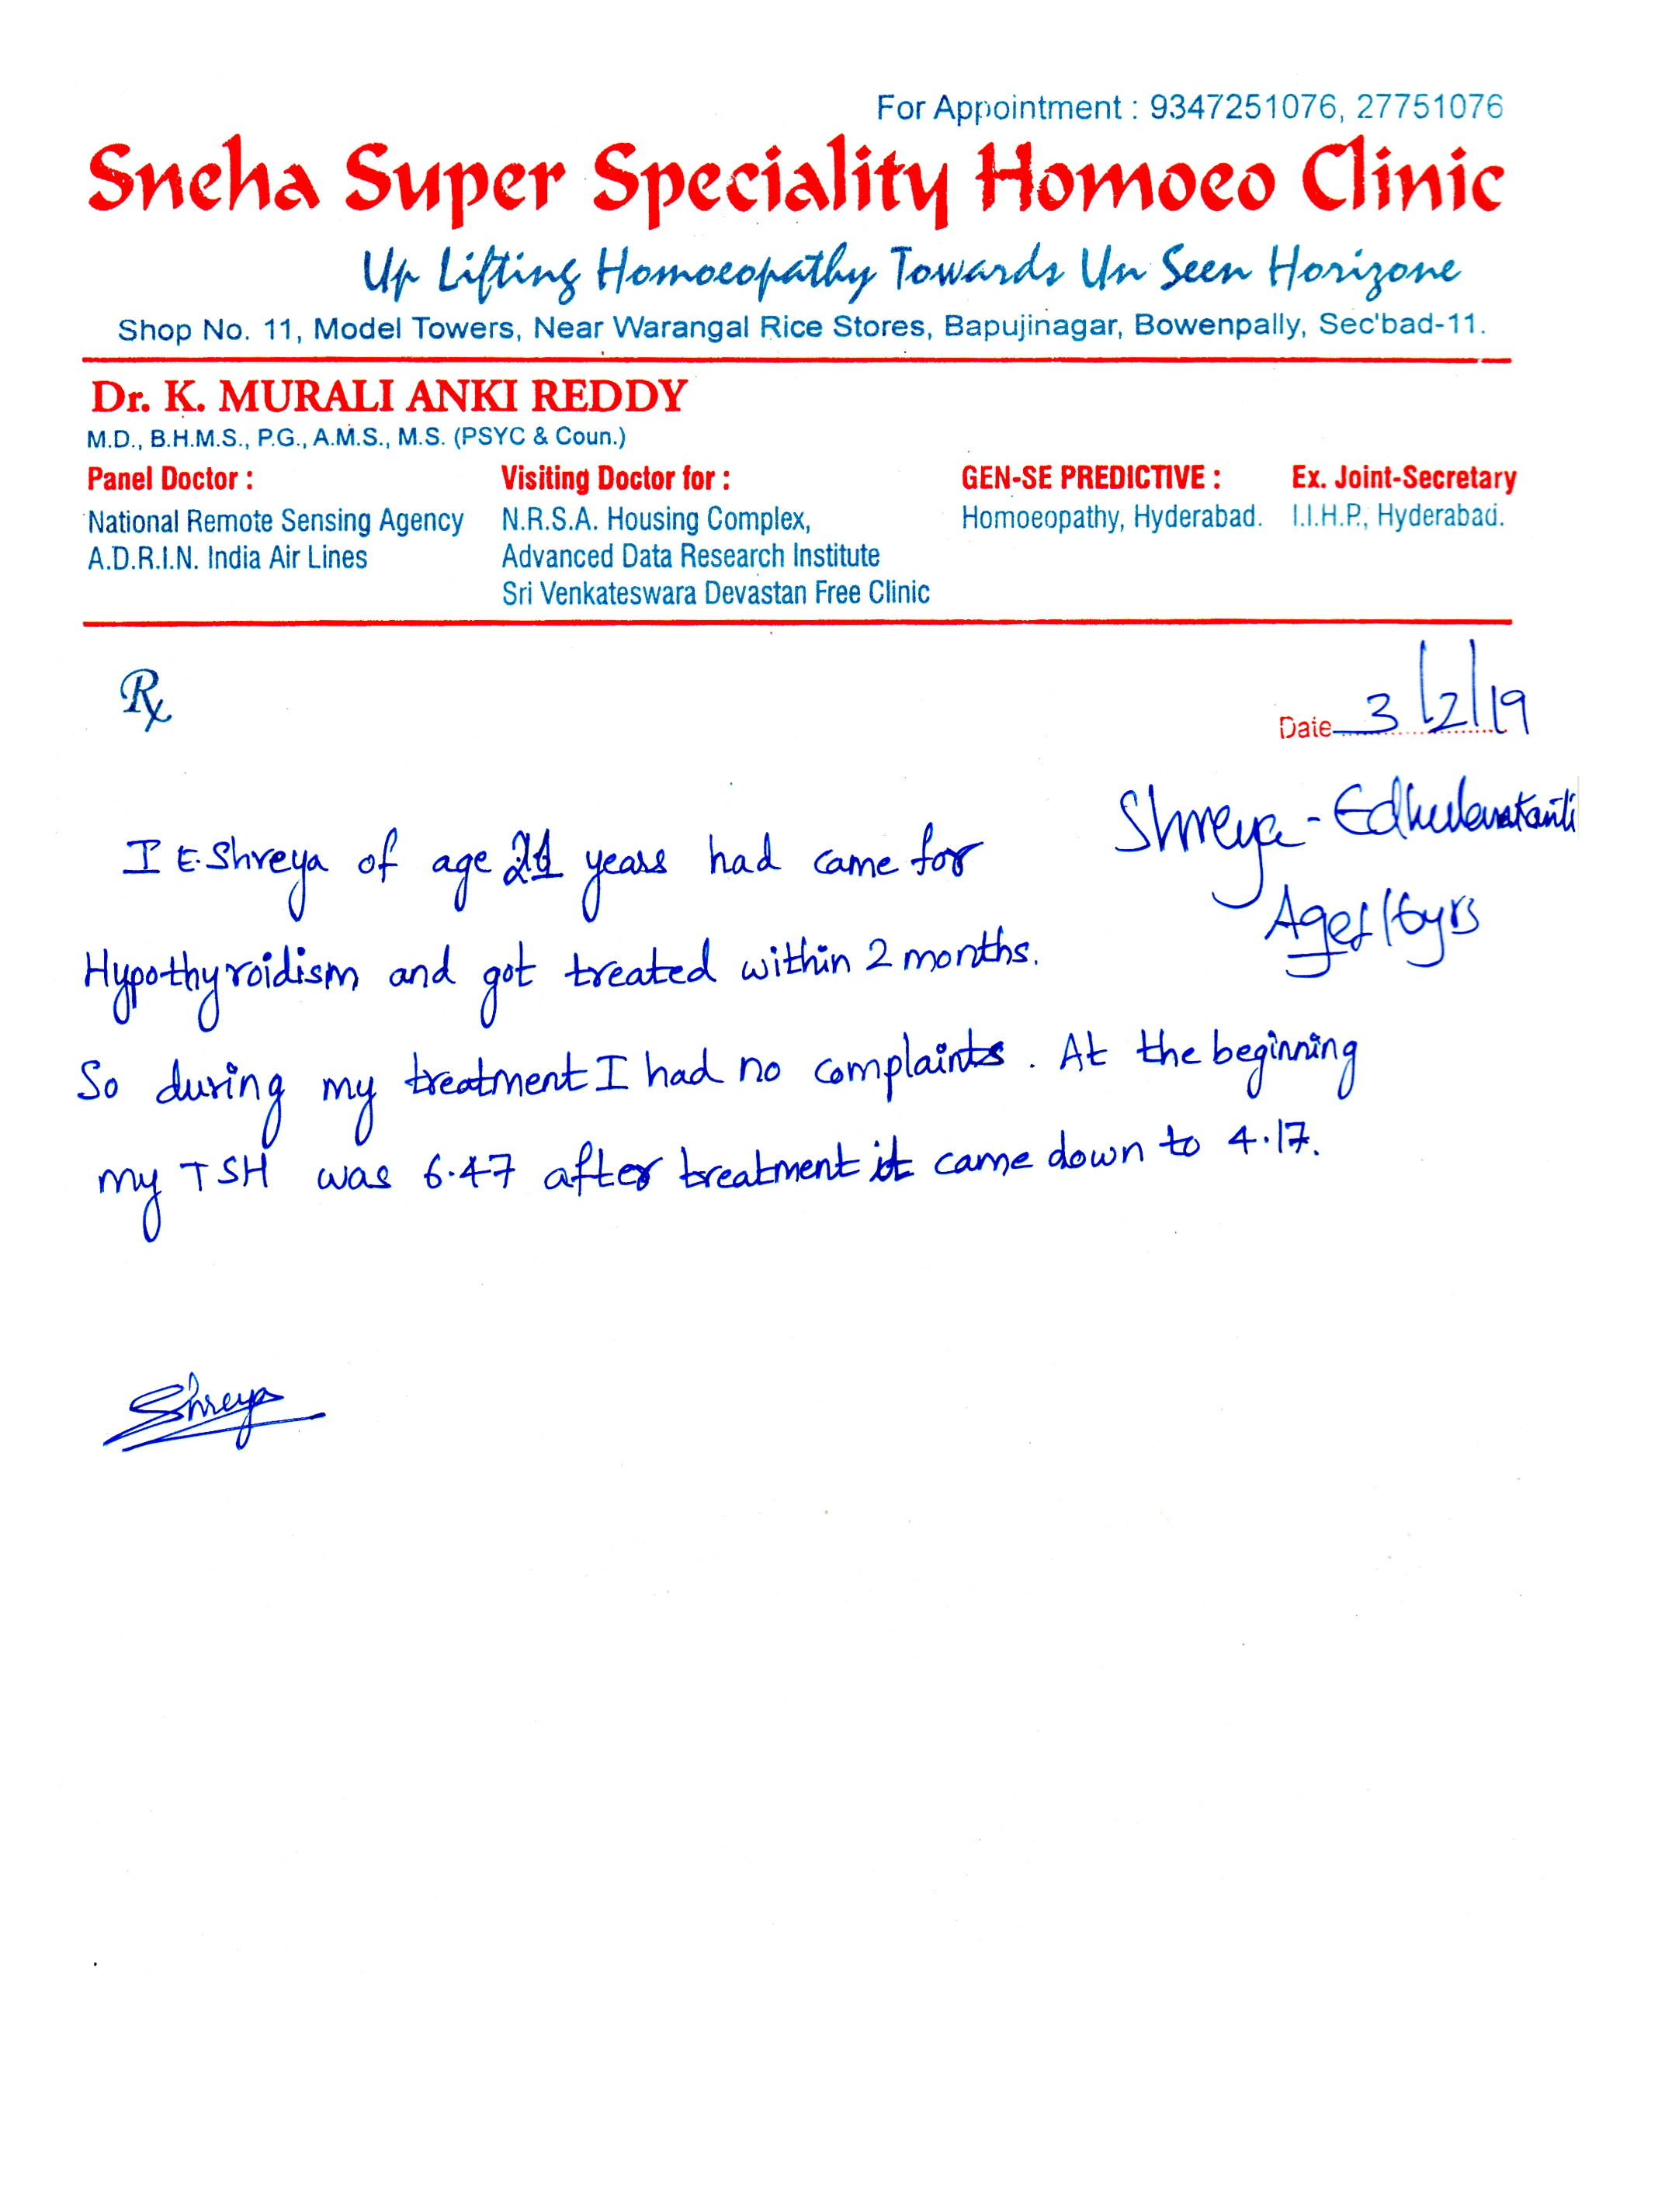 For Appointment : 9347251076, 27751076
Sneha Super Speciality Homoeo Clinic
Up Lifting Homoeopathy Towards Un Seen Horizone
Shop No. 11, Model Towers, Near Warangal Rice Stores, Bapujinagar, Bowenpally, Sec'bad-11.
Dr. K. MURALI ANKI REDDY
M.D., B.H.M.S., P.G., A.M.S., M.S. (PSYC & Coun.)
Panel Doctor :
National Remote Sensing Agency
A.D.R.I.N. India Air Lines
Visiting Doctor for :
N.R.S.A. Housing Complex,
Advanced Data Research Institute
Sri Venkateswara Devastan Free Clinic
GEN-SE PREDICTIVE :
Homoeopathy, Hyderabad.
Ex. Joint-Secretary
I.I.H.P., Hyderabad.
Rx
Date 3/2/19
Shreya -
I E. Shreya of age 21 years had came for
Hypothyroidism and got treated within 2 months.
So during my treatment I had no complaints. At the beginning
my TSH was 6.47 after treatment it came down to 4.17.
Shreya